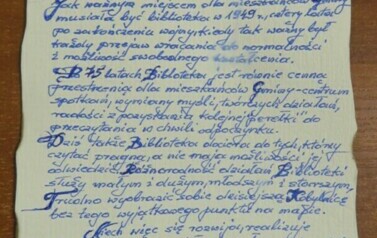 Jak ważnym miejscem dla mieszkańców Gminy
musiała być Biblioteka w 1949 r., cztery lata
po zakończeniu wojny, kiedy tak ważny był
każdy przejaw wracania do normalności
i możliwość swobodnego
Po 75 latach Biblioteka jest równie cenną
przestrzenią dla mieszkańców Gminy - centrum
spotkań, wymiany myśli, twórczych działań,
radości z pozyskania kolejnej "perełki" do
przeczytania w chwili odpoczynku.
Dziś także Biblioteka dociera do tych, którzy
czytać pragną, a nie mają możliwości jej
odwiedzić. Różnorodność działań Biblioteki
służy małym i dużym, młodszym i starszym.
Trudno wyobrazić sobie dzisiejszą Kobylnicę
bez tego wyjątkowego punktu na mapie.
Niech więc się rozwija, realizuje